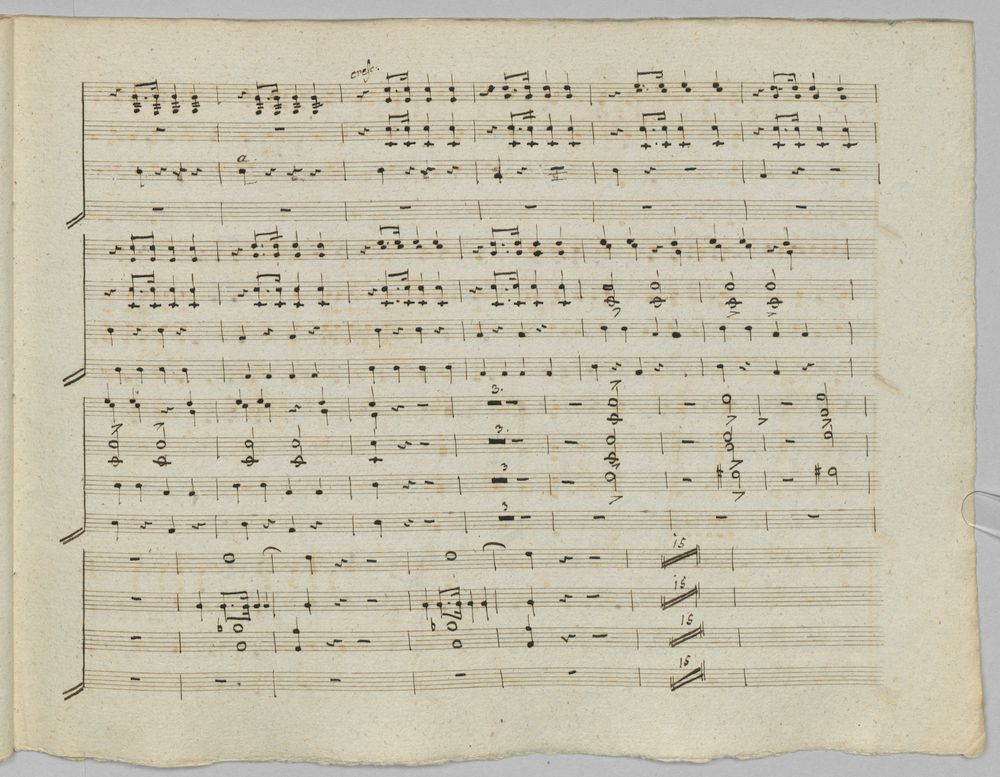 cresc.
a
3.
3.
3
3
15
15
15
15